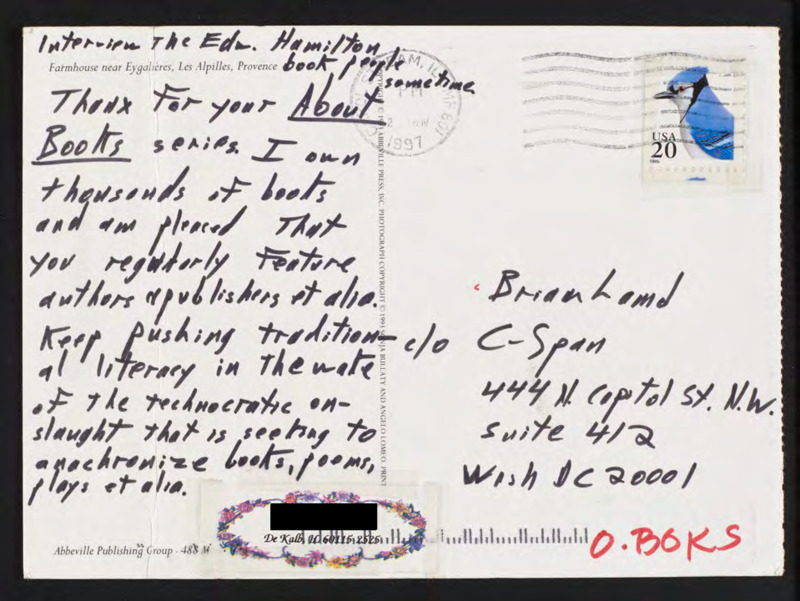 Interview The Edw. Hamilton
book people
sometime
Farmhouse near Eygalières, Les Alpilles, Provence
Thanx For your About
Books series. I own
thousands of books
and am pleaced That
you regularly Feature
authors & publishers et alia.
Keep pushing tradition-
al literacy in The wake
of The technocratic on-
slaught that is seeking to
anachronize books, poems,
plays et alia.
Abbeville Publishing Group - 488 M
COPYRIGHT © 1993 ABBEVILLE PRESS, INC. PHOTOGRAPH COPYRIGHT © 1993 SONJA BULLATY AND ANGELO LOMEO. PRINT
AM, IL
PM
1997
USA
20
Brian Lamb
c/o C-Span
444 N. Capitol St. N.W.
Suite 412
Wash DC 20001
De Kalb, IL 60115-2525
O.BOKS